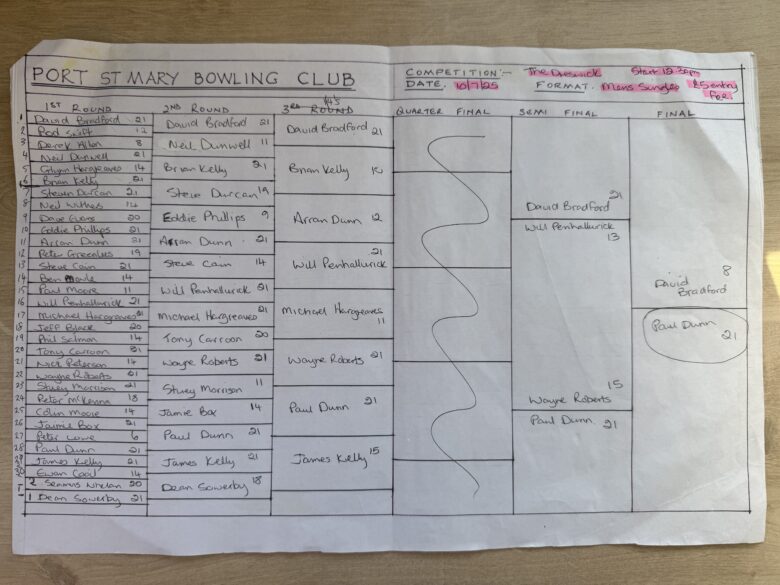 PORT ST MARY BOWLING CLUB
COMPETITION:- The Dreswick Start 12.30pm
DATE. 10/7/25 FORMAT. Mens Singles £5 entry fee.
1ST ROUND
1 David Bradford 21
2 Rod Swift 12
3 Derek Allen 8
4 Neil Dunwell 21
5 Glynn Hargreaves 14
6 Brian Kelly 21
7 Steven Durcan 21
8 Neil Withers 14
9 Dave Evans 20
10 Eddie Phillips 21
11 Arran Dunn 21
12 Peter Greenlees 19
13 Steve Cain 21
14 Ben Moule 14
15 Paul Moore 11
16 Will Penhallurick 21
17 Michael Hargreaves 21
18 Jeff Black 20
19 Phil Salmon 14
20 Tony Carroon 21
21 Nick Peterson 14
22 Wayne Roberts 21
23 Stuey Morrison 21
24 Peter McKenna 18
25 Colin Moore 14
26 Jamie Box 21
27 Peter Lowe 6
28 Paul Dunn 21
29 James Kelly 21
30 Ewan Cool 14
2 Seamus Whelan 20
1 Dean Sowerby 21
2ND ROUND
David Bradford 21
Neil Dunwell 11
Brian Kelly 21
Steve Durcan 19
Eddie Phillips 9
Arran Dunn 21
Steve Cain 14
Will Penhallurick 21
Michael Hargreaves 21
Tony Carroon 20
Wayne Roberts 21
Stuey Morrison 11
Jamie Box 14
Paul Dunn 21
James Kelly 21
Dean Sowerby 18
3RD ROUND
David Bradford 21
Brian Kelly
Arran Dunn 12
Will Penhallurick 21
Michael Hargreaves 11
Wayne Roberts 21
Paul Dunn 21
James Kelly 15
QUARTER FINAL
SEMI FINAL
David Bradford 21
Will Penhallurick 13
Wayne Roberts 15
Paul Dunn 21
FINAL
David Bradford 8
Paul Dunn 21